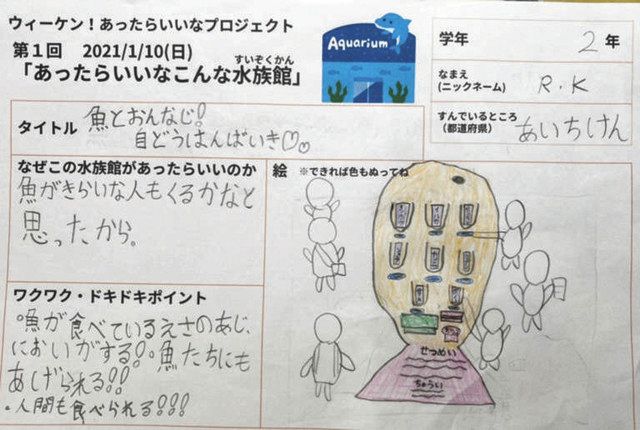 ウィーケン！あったらいいなプロジェクト
第１回 2021/1/10(日)
「あったらいいなこんな水族館」
すいぞくかん
Aquarium
学年 2 年
なまえ
(ニックネーム) R.K
すんでいるところ
(都道府県) あいちけん
タイトル 魚とおんなじ!
自どうはんばいき♡♡
なぜこの水族館があったらいいのか
魚がきらいな人もくるかなと
思ったから。
ワクワク・ドキドキポイント
°魚が食べているえさのあじ、
においがする!°魚たちにも
あげられる!!
・人間も食べられる!!!
絵 ※できれば色もぬってね
せつめい